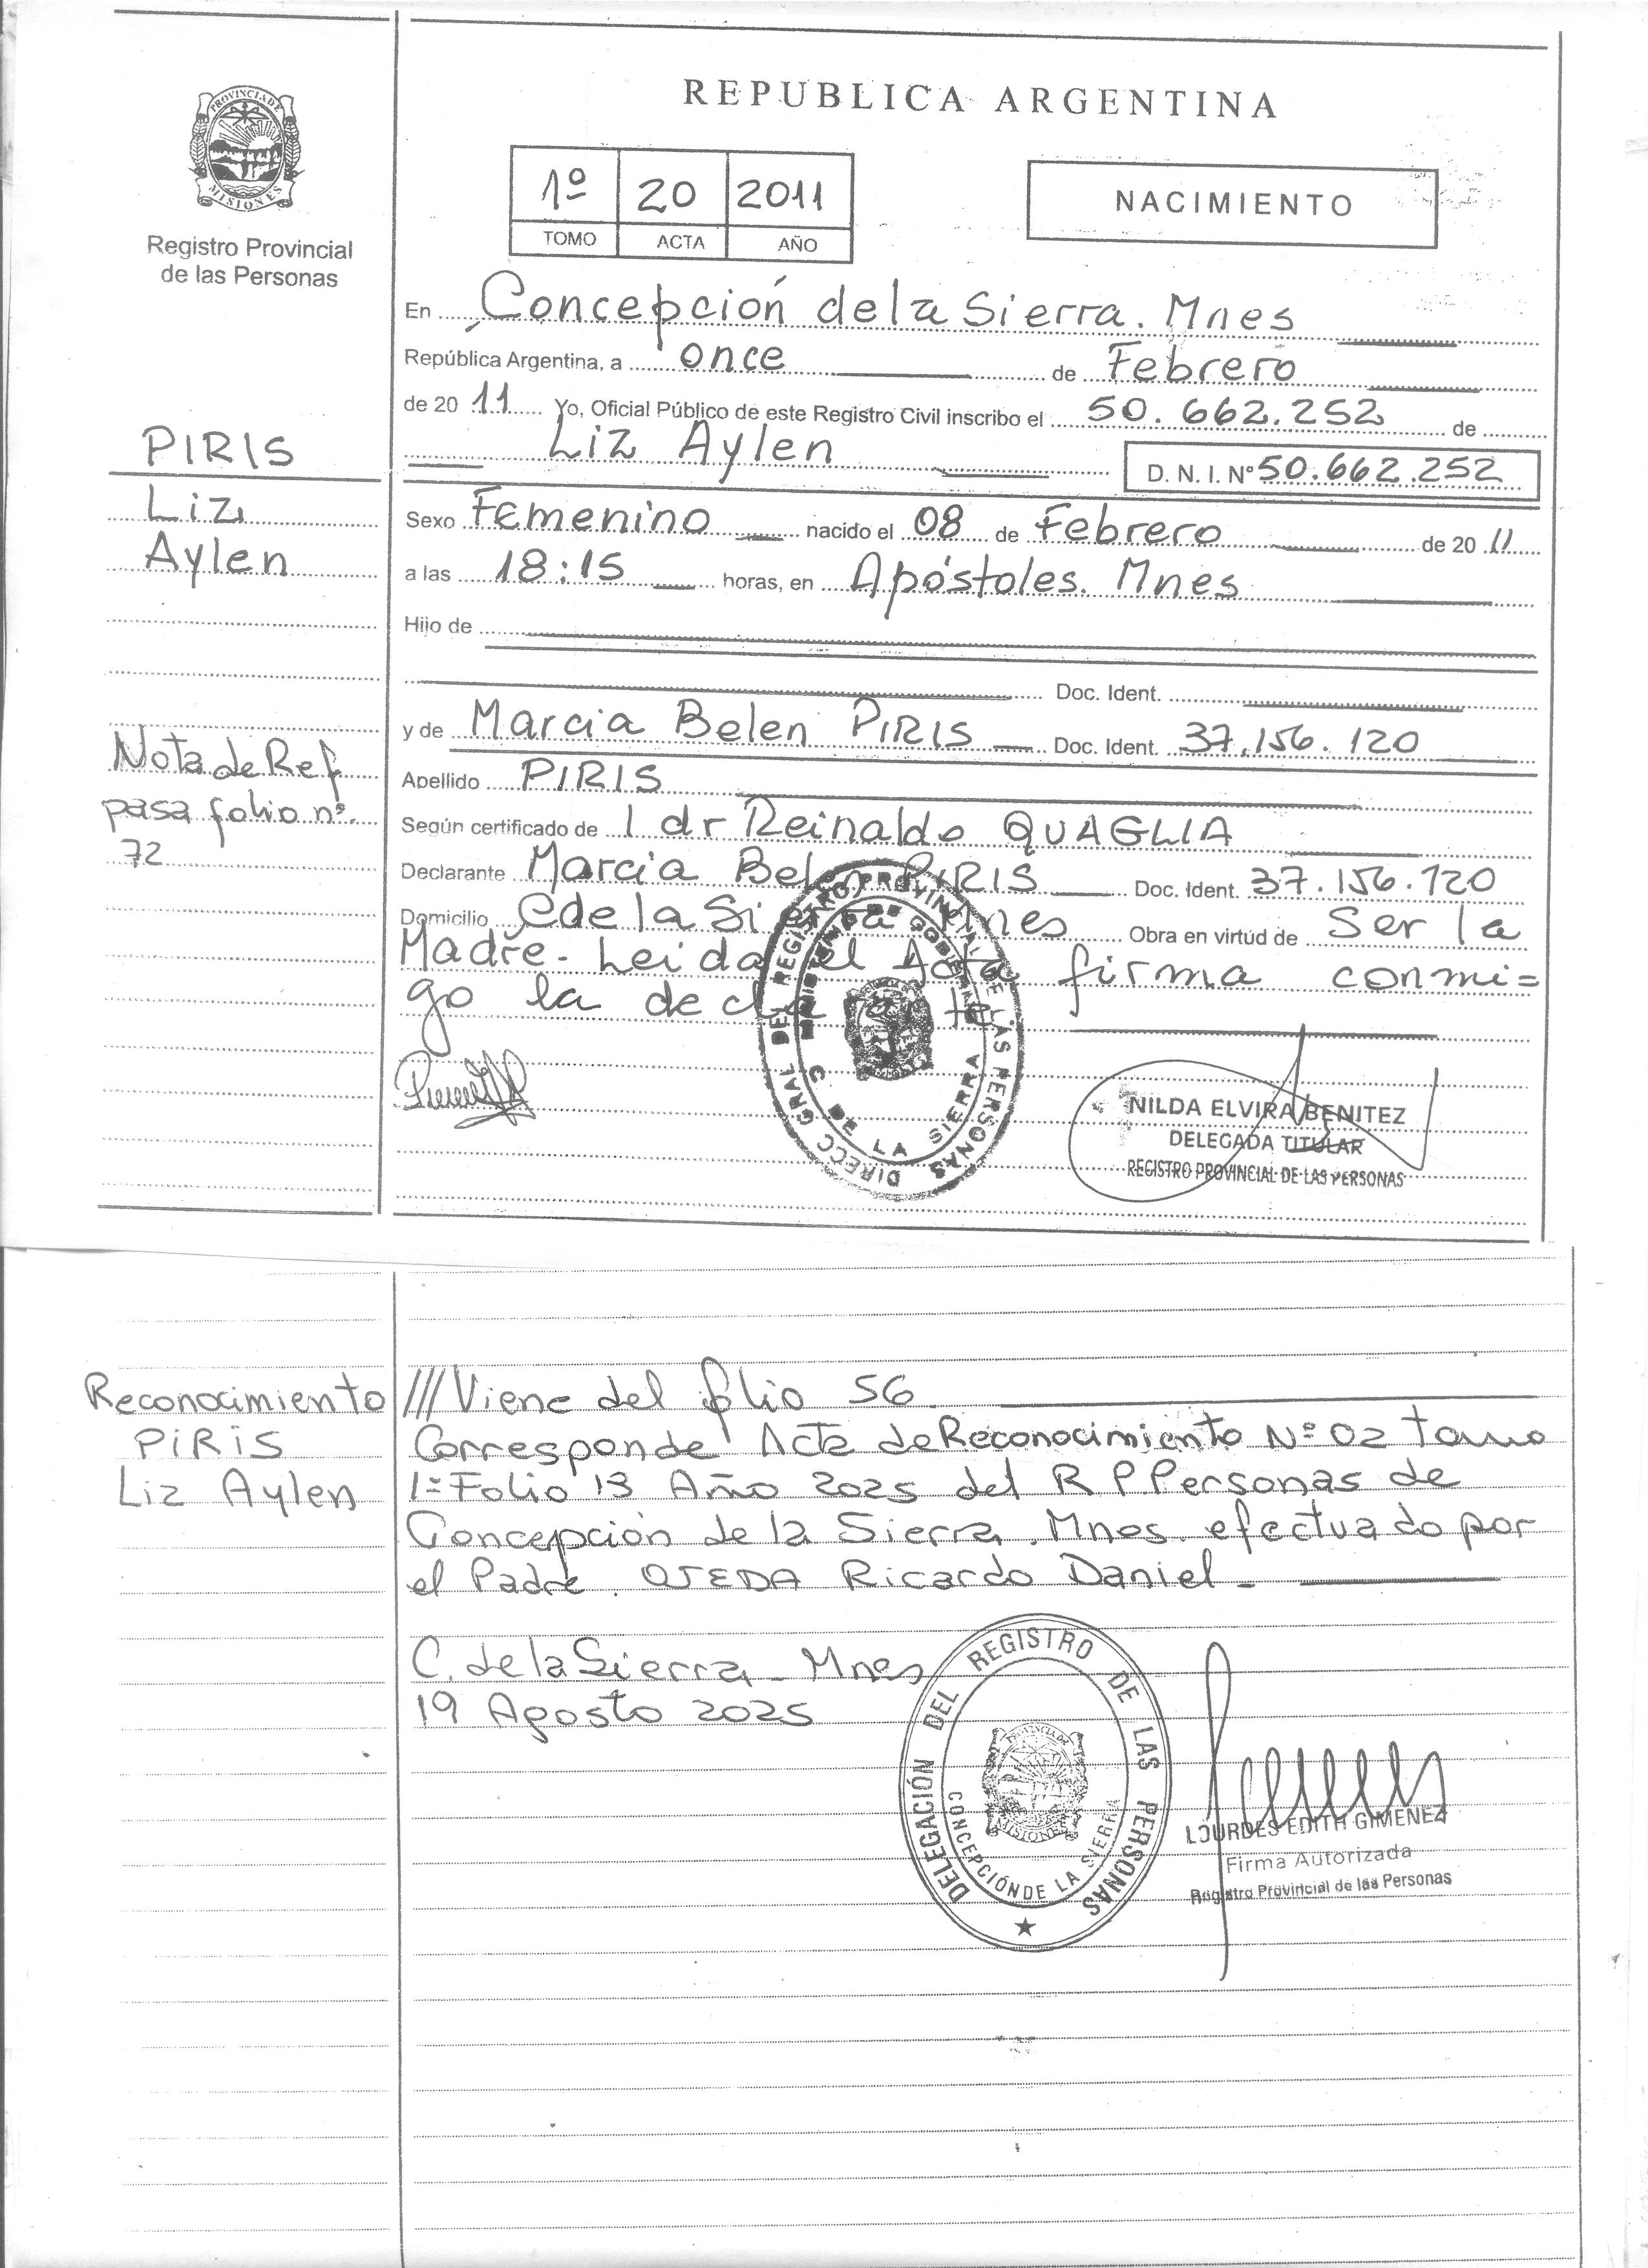 PROVINCIA DE
MISIONES
Registro Provincial
de las Personas
REPUBLICA ARGENTINA
1º 20 2011
TOMO ACTA AÑO
NACIMIENTO
En Concepción de la Sierra. Mnes
República Argentina, a once de Febrero
de 20 11 Yo, Oficial Público de este Registro Civil inscribo el 50.662.252 de
Liz Aylen D. N. I. Nº 50.662.252
PIRIS
Liz
Aylen
Sexo Femenino nacido el 08 de Febrero de 20 11
a las 18:15 horas, en Apóstoles. Mnes
Hijo de
Doc. Ident.
y de Marcia Belen PIRIS Doc. Ident. 37.156.120
Nota de Ref
pasa folio nº.
72
Apellido PIRIS
Según certificado de l dr Reinaldo QUAGLIA
Declarante Marcia Belen PIRIS Doc. Ident. 37.156.120
Domicilio C de la Sierra Mnes Obra en virtud de Ser la
Madre. Leida el Acta firma conmi=
go la declarante.
DIRECC GRAL DEL REGISTRO PROVINCIAL DE LAS PERSONAS
MINISTERIO DE GOBIERNO
C DE LA SIERRA
NILDA ELVIRA BENITEZ
DELEGADA TITULAR
REGISTRO PROVINCIAL DE LAS PERSONAS
Reconocimiento
PIRIS
Liz Aylen
///Viene del folio 56
Corresponde Acta de Reconocimiento Nº 02 tomo
1º Folio 13 Año 2025 del R P. Personas de
Concepción de la Sierra. Mnes. efectuado por
el Padre. OJEDA Ricardo Daniel.
C. de la Sierra - Mnes
19 Agosto 2025
DELEGACIÓN DEL REGISTRO DE LAS PERSONAS
CONCEPCIÓN DE LA SIERRA
PROVINCIA DE
MISIONES
LOURDES EDITH GIMENEZ
Firma Autorizada
Registro Provincial de las Personas